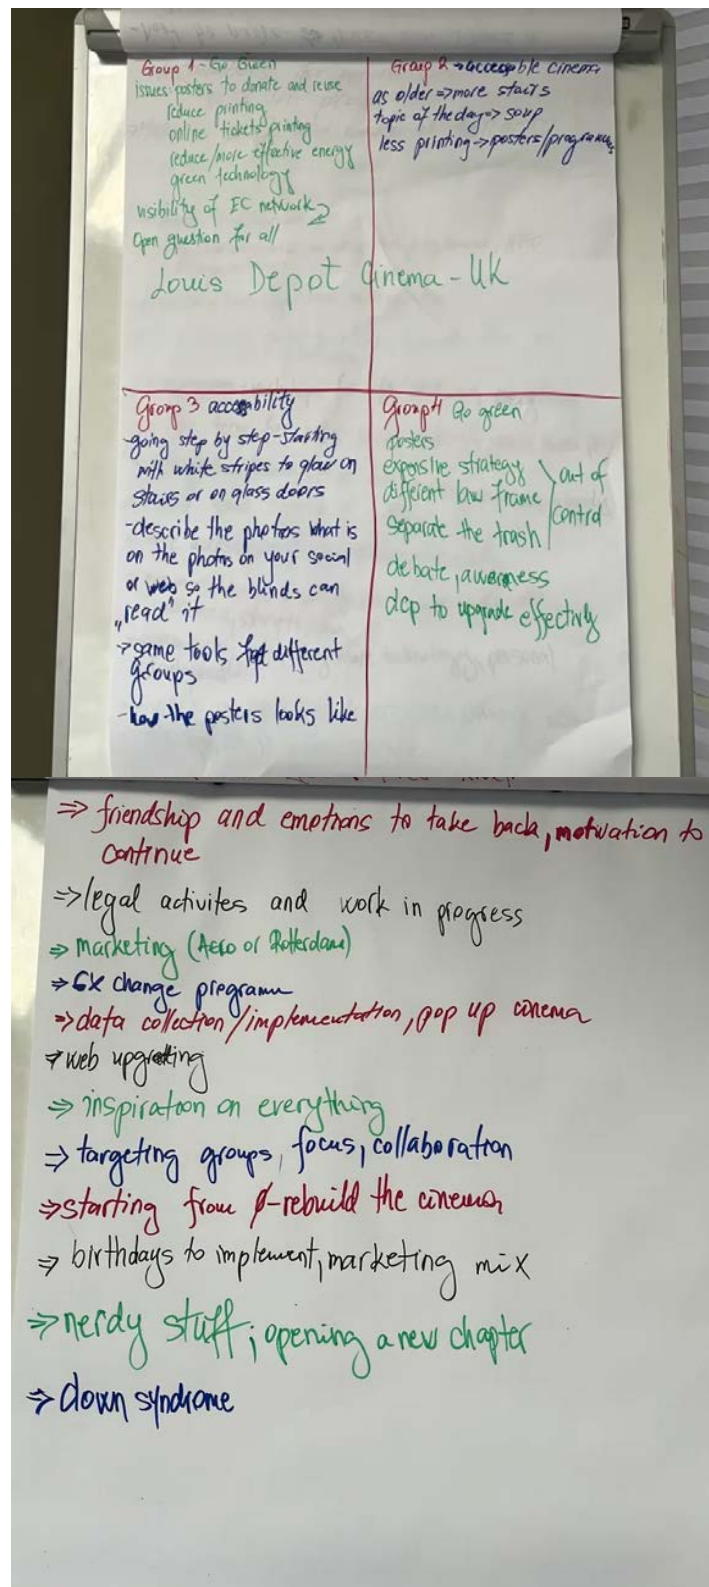 Group 1 - Go Green
issues: posters to donate and reuse
reduce printing
online tickets printing
reduce/more effective energy
green technology
visibility of EC network
Open question for all
Group 2 → accessible cinema
as older ⇒ more stairs
topic of the day => soup
less printing → posters/programmes
Louis Depot Cinema - UK
Group 3 accessibility
-going step by step-starting
with white stripes to glow on
stairs or on glass doors
-describe the photos what is
on the photos on your social
or web so the blinds can
„read" it
→ same tools different
groups
-how the posters looks like
Group 4 Go green
posters
expensive strategy
different law frame
separate the trash
out of
control
debate, awareness
dcp to upgrade effectively
⇒ friendship and emotions to take back, motivation to
continue
⇒ legal activites and work in progress
⇒ marketing (Aero or Rotterdam)
⇒ Ex change programm
⇒ data collection/implementation, pop up cinema
⇒ web upgrating
⇒ inspiration on everything
⇒ targeting groups, focus, collaboration
⇒ starting from 0-rebuild the cinema
⇒ birthdays to implement, marketing mix
⇒ nerdy stuff; opening a new chapter
⇒ down syndrome